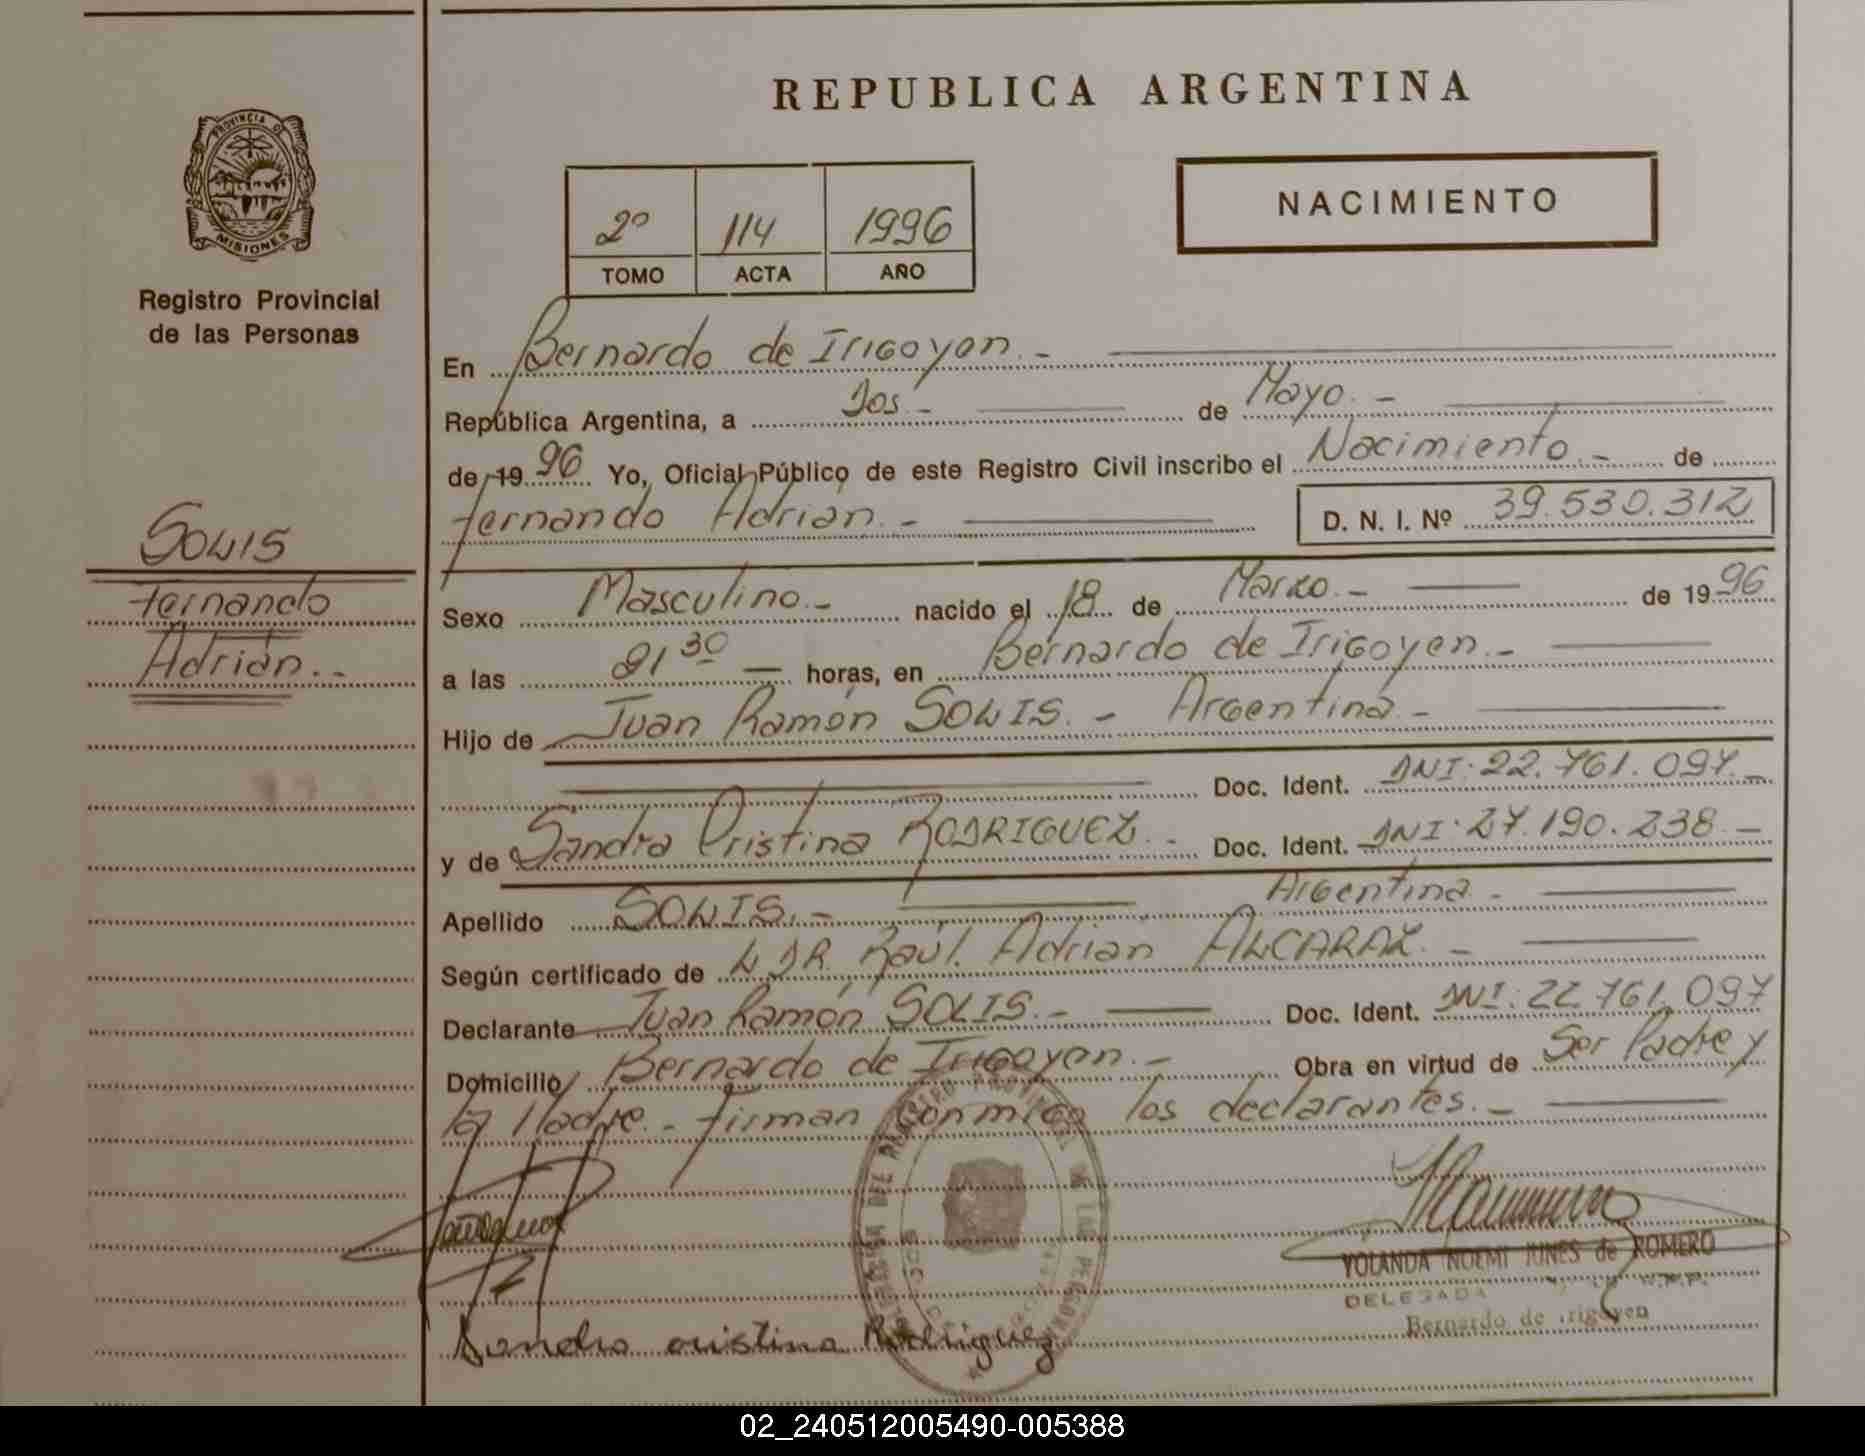 REPUBLICA ARGENTINA
PROVINCIA DE
MISIONES
Registro Provincial
de las Personas
2º 114 1996
TOMO ACTA AÑO
NACIMIENTO
SOLIS
Fernando
Adrián.-
En Bernardo de Irigoyen.-
República Argentina, a Dos.- de Mayo.-
de 1996 Yo, Oficial Público de este Registro Civil inscribo el Nacimiento.- de
Fernando Adrián.- D. N. I. Nº 39.530.312
Sexo Masculino.- nacido el 18 de Marzo.- de 1996
a las 21 30 horas, en Bernardo de Irigoyen.-
Hijo de Juan Ramón SOLIS.- Argentina.-
Doc. Ident. DNI: 22.761.097.-
y de Sandra Cristina RODRIGUEZ.- Doc. Ident. DNI: 27.190.238.-
Argentina.-
Apellido SOLIS.-
Según certificado de L DR. Raúl. Adrián ALCARAZ.-
Declarante Juan Ramón SOLIS.- Doc. Ident. DNI: 22.761.097
Domicilio Bernardo de Irigoyen.- Obra en virtud de Ser Padre y
la Madre.- Firman conmigo los declarantes.-
YOLANDA NOEMI JUNES de ROMERO
DELEGADA
Bernardo de Irigoyen
Sandra cristina Rodriguez
02_240512005490-005388